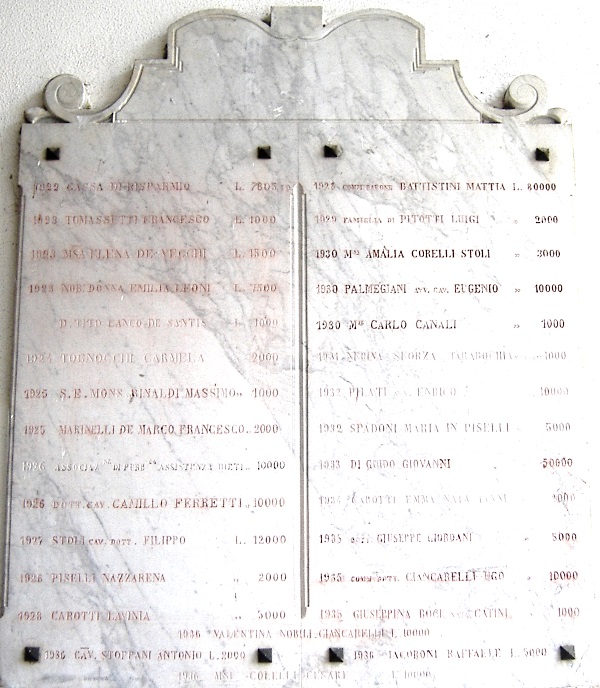 1922 CASSA DI RISPARMIO L.
1923 TOMASSETTI FRANCESCO L. 1000
1923 MSA ELENA DE VECCHI L. 1500
1923 NOB. DONNA EMILIA LEONI L. 1500
D. TITO CANCO DE SANTIS L. 1000
CARMELA 2000
1925 S. E. MONS RINALDI MASSIMO „ 1000
1925 MARINELLI DE MARCO FRANCESCO „ 2000
1926 ASSOCIAZ NE DI PUBB CA ASSISTENZA RIETI „ 10000
1926 DOTT. CAV. CAMILLO FERRETTI „ 10000
1927 STOLI CAV. DOTT. FILIPPO L. 12000
1928 PISELLI NAZZARENA „ 2000
1928 CAROTTI LAVINIA „ 5000
BATTISTINI MATTIA L. 80000
1929 FAMIGLIA DI PITOTTI LUIGI „ 2000
1930 MSA AMALIA CORELLI STOLI „ 3000
1930 PALMEGIANI AVV. CAV. EUGENIO „ 10000
1930 MSE CARLO CANALI „ 1000
1931 NERINA SFORZA
1932 PILATI ENRICO 10000
1932 SPADONI MARIA IN PISELLI „ 5000
1933 DI GUIDO GIOVANNI „ 50000
CAROTTI EMMA NATA
1935 GIUSEPPE GIORDANI „ 5000
1935 COMM. DOTT. CIANCARELLI UGO „ 10000
1935 GIUSEPPINA 1000
1936 VALENTINA NOBILI GIANCARELLI L. 10000
1936 CAV. STOPPANI ANTONIO L. 2000
1936 IACOBONI RAFFAELE L. 5000
1936 CESARE L. 10000